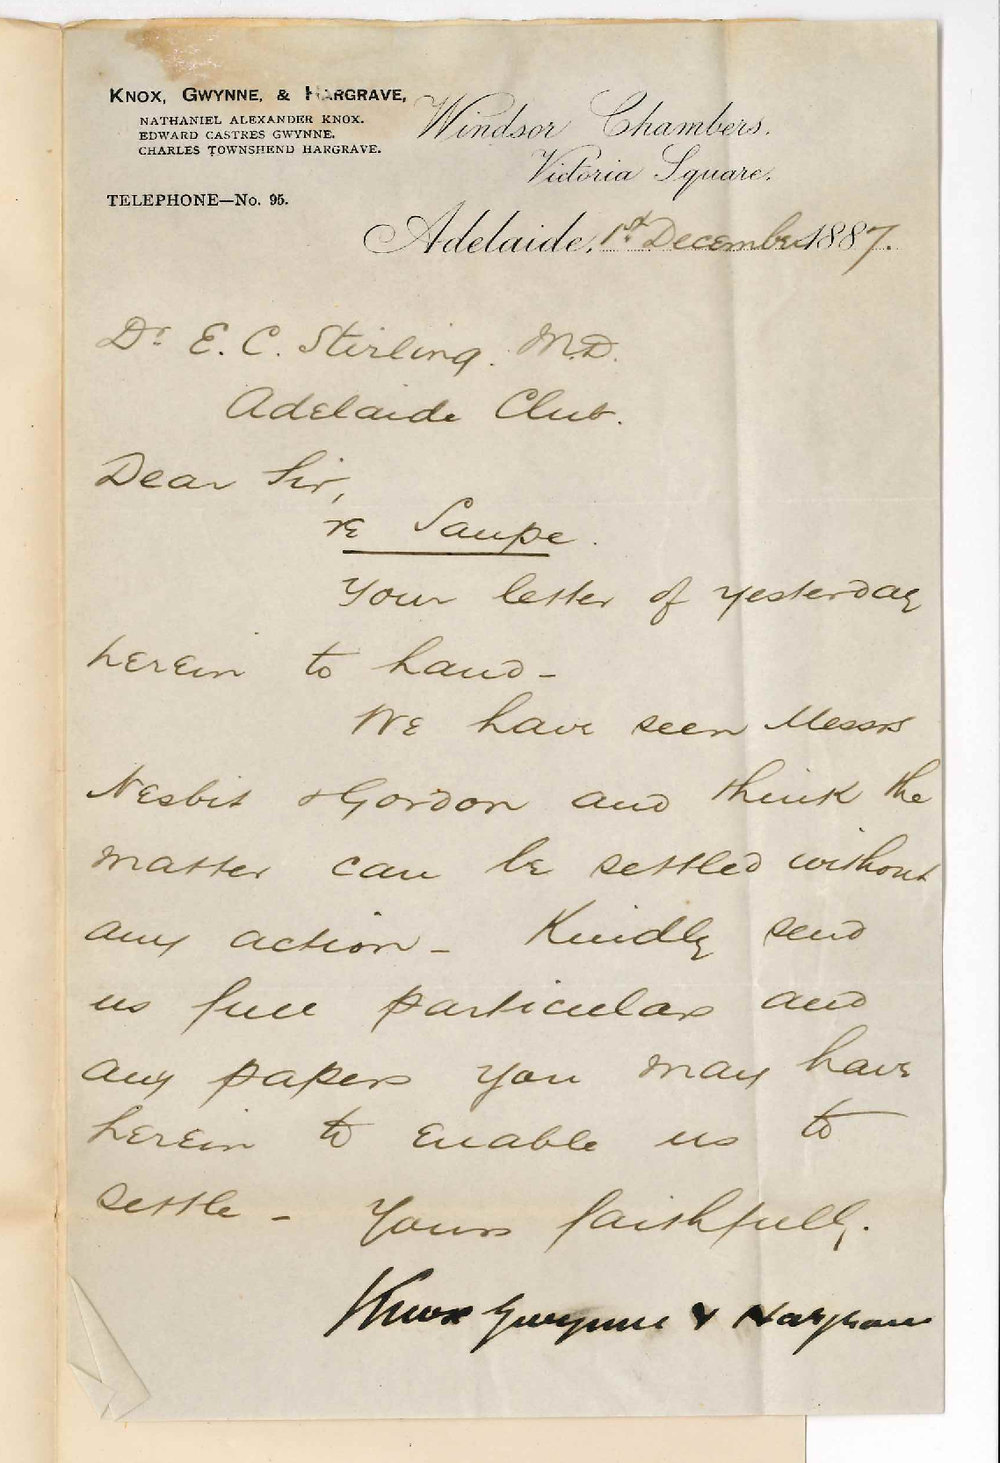 KNOX, GWYNNE, & HARGRAVE,
NATHANIEL ALEXANDER KNOX.
EDWARD CASTRES GWYNNE.
CHARLES TOWNSHEND HARGRAVE.
TELEPHONE—No. 95.
Windsor Chambers.
Victoria Square.
Adelaide, 1st December 1887.
Dr E. C. Stirling. M.D.
Adelaide Club.
Dear Sir,
re Saupe.
Your letter of yesterday
herein to hand –
We have seen Messrs
Nesbit & Gordon and think the
matter can be settled without
any action – Kindly send
us full particulars and
any papers you may have
herein to enable us to
settle – Yours faithfully.
Knox Gwynne & Hargrave